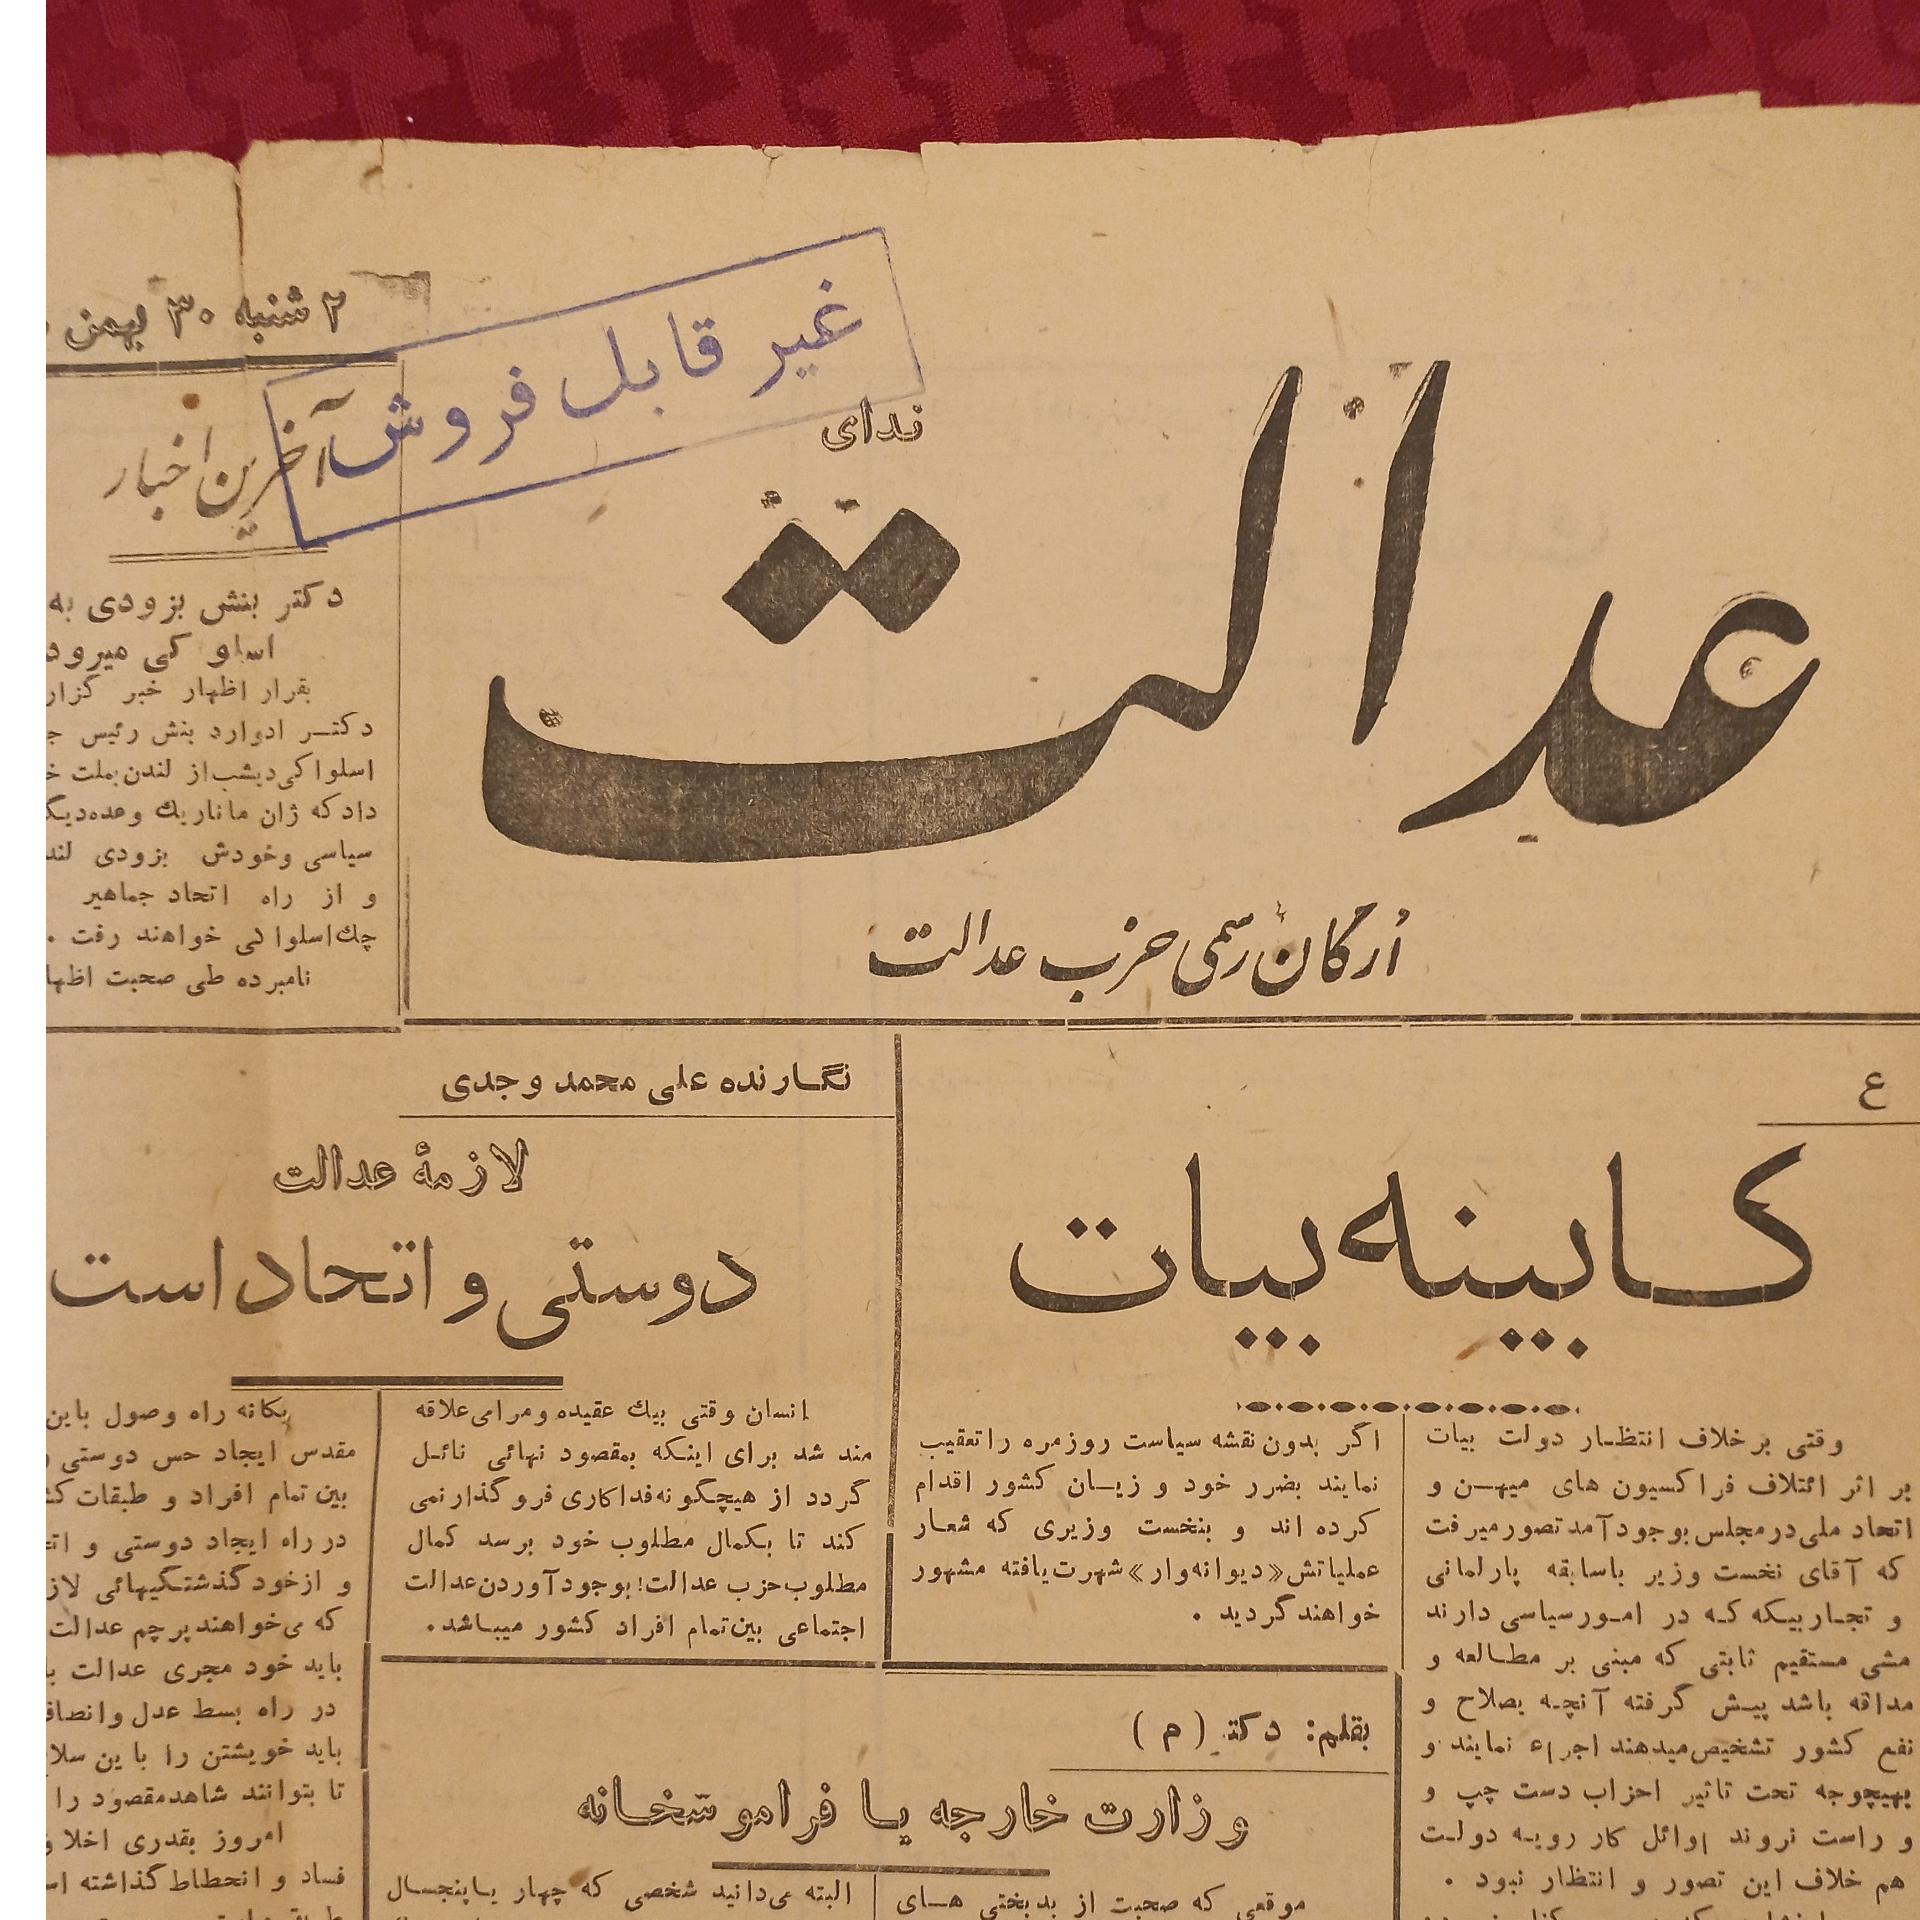 ندای
عدالت
ارگان رسمی حزب عدالت
غیر قابل فروش
۲ شنبه ۳۰ بهمن
آخرین اخبار
دکتر بنش بزودی به
اسلو کی میرود
بقرار اظهار خبر گزار
دکتـر ادوارد بنش رئیس ج
اسلوا کی دیشب از لندن بملت خ
داد که ژان ماناریك و عده دیگ
سیاسی و خودش بزودی لند
و از راه اتحاد جماهیر
چك اسلوا کی خواهند رفت .
نامبرده طی صحبت اظها
ع
کابینه بیات
وقتی بر خلاف انتظـار دولت بیات
بر اثر ائتلاف فرا کسیون های میهـن و
اتحاد ملی در مجلس بوجود آمد تصور میرفت
که آقای نخست وزیر باسابقه پارلمانی
و تجـاربیـکه کـه در امـور سیاسی دارند
مشی مستقیم ثابتی که مبنی بر مطـالعه و
مداقه باشد پیـش گرفته آنچـه بصلاح و
نفع کشور تشخیص میدهند اجراء نمایند و
بهیچوجه تحت تاثیر احزاب دست چپ و
و راست نروند اوائل کار رویـه دولـت
هم خلاف این تصور و انتظار نبود .
اگر بدون نقشه سیاست روزمره را تعقیب
نمایند بضرر خود و زیـان کشور اقدام
کرده اند و بنخست وزیری که شعـار
عملیاتش «دیوانه وار» شهرت یافته مشهور
خواهند گردید .
نگـارنده علی محمد وجدی
لازمهٔ عدالت
دوستی و اتحاد است
انسان وقتی بیك عقیده و مرامی علاقه
مند شد برای اینـکه بمقصود نهائی نائـل
گردد از هیچگو نه فدا کاری فرو گذار نمی
کند تا بـکمال مطلوب خود برسد کمال
مطلوب حزب عدالت! بوجود آوردن عدالت
اجتماعی بین تمام افراد کشور میبـاشد.
یکانه راه وصول باین
مقدس ایجاد حس دوستی و
بین تمام افراد و طبقات کش
در راه ایجاد دوستی و اتح
و از خود گذشتـگیهائی لاز
که می خواهند پرچم عدالت
باید خود مجری عدالت ب
در راه بسط عدل و انصاف
باید خویشتن را با ین سلا
تا بتوانند شاهد مقصود را
امروز بقدری اخلا و
فساد و انحطاط گذاشته اس
بقلم: دکتـ ( م )
وزارت خارجه یـا فراموشخـانه
موقعی که صحبت از بدبختی هـای
البته می دانید شخصی که چهار یـا پنجسـال